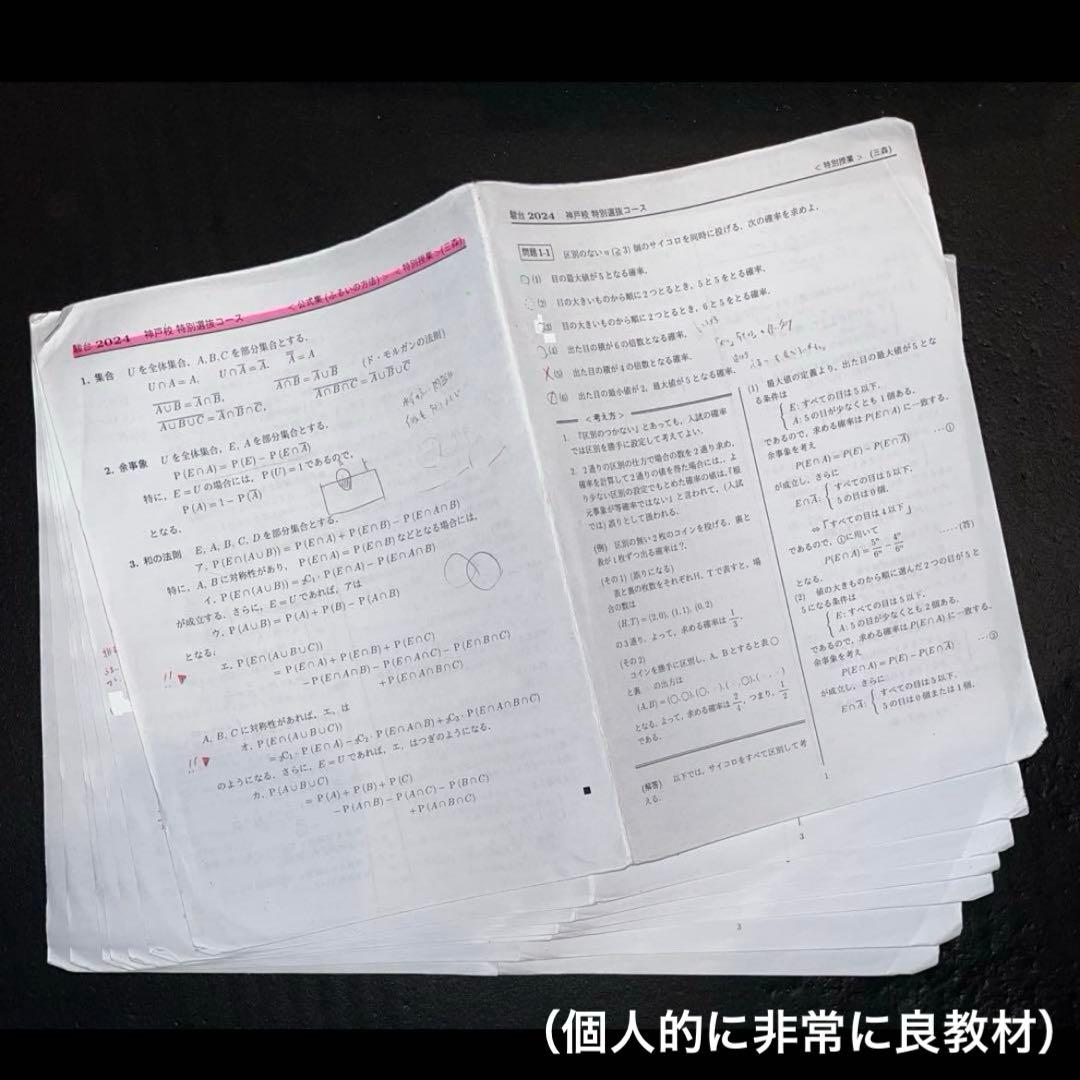 駿台 2024 神戸校 特別選抜コース <公式集 (ふるいの方法) > <特別授業> (三森)
1. 集合 U を全体集合, A, B, C を部分集合とする.
U∩A = A, U∩A̅ = A̅, A̿ = A
(ド・モルガンの法則)
2. 余事象 U を全体集合, E, A を部分集合とする.
P(E∩A) = P(E) − P(E∩A̅)
特に, E = U の場合には, P(U) = 1 であるので,
P(A) = 1 − P(A̅)
となる.
3. 和の法則 E, A, B, C, D を部分集合とする.
ア. P(E∩(A∪B)) = P(E∩A) + P(E∩B) − P(E∩A∩B)
特に, A, B に対称性があり, P(E∩A) = P(E∩B) などとなる場合には,
イ. P(E∩(A∪B)) = ₂C₁・P(E∩A) − P(E∩A∩B)
が成立する. さらに, E = U であれば, アは
ウ. P(A∪B) = P(A) + P(B) − P(A∩B)
となる.
!! エ. P(E∩(A∪B∪C))
= P(E∩A) + P(E∩B) + P(E∩C)
−P(E∩A∩B) − P(E∩A∩C) − P(E∩B∩C)
+P(E∩A∩B∩C)
A, B, C に対称性があれば, エ. は
!! オ. P(E∩(A∪B∪C))
= ₃C₁・P(E∩A) − ₃C₂・P(E∩A∩B) + P(E∩A∩B∩C)
のようになる. さらに, E = U であれば, エ. はつぎのようになる.
カ. P(A∪B∪C)
= P(A) + P(B) + P(C)
−P(A∩B) − P(A∩C) − P(B∩C)
+P(A∩B∩C)
■
駿台 2024 神戸校 特別選抜コース <特別授業> (三森)
問題 1-1 区別のない n (≧ 3) 個のサイコロを同時に投げる. 次の確率を求めよ.
(1) 目の最大値が 5 となる確率.
(2) 目の大きいものから順に 2 つとるとき, 5 と 5 をとる確率.
(3) 目の大きいものから順に 2 つとるとき, 6 と 5 をとる確率.
(4) 出た目の積が 6 の倍数となる確率.
(5) 出た目の積が 4 の倍数となる確率.
(6) 出た目の最小値が 2, 最大値が 5 となる確率.
<考え方>
1. 「区別のつかない」とあっても, 入試の確率
では区別を勝手に設定して考えてよい.
2. 2 通りの区別の仕方で場合の数を 2 通り求め,
確率を計算して 2 通りの値を得た場合には, よ
り少ない区別の設定でもとめた確率の値は,「根
元事象が等確率ではない」と言われて, (入試
では) 誤りとして扱われる.
(例) 区別の無い 2 枚のコインを投げる, 裏と
表が 1 枚ずつ出る確率は?.
(その1) (誤りになる)
表と裏の枚数をそれぞれ H, T で表すと, 場
合の数は
(H, T) = (2, 0), (1, 1), (0, 2)
の 3 通り. よって, 求める確率は 1/3.
(その2)
コインを勝手に区別し, A, B とすると表○
と裏 の出方は
となる. よって, 求める確率は 2/4, つまり, 1/2
である.
(解答) 以下では, サイコロをすべて区別して考
える.
(1) 最大値の定義より, 出た目の最大値が 5 とな
る条件は
E: すべての目は 5 以下.
A: 5 の目が少なくとも 1 個ある.
であるので, 求める確率は P(E∩A) に一致する.
余事象を考え
P(E∩A) = P(E) − P(E∩A̅) …①
が成立し, さらに
E∩A̅: { すべての目は 5 以下.
5 の目は 0 個.
⇔「すべての目は 4 以下」
であるので, ①に用いて
P(E∩A) = 5ⁿ/6ⁿ − 4ⁿ/6ⁿ ……(答)
となる.
(2) 値の大きものから順に選んだ 2 つの目が 5 と
5 になる条件は
E: すべての目は 5 以下.
A: 5 の目が少なくとも 2 個ある.
であるので, 求める確率は P(E∩A) に一致する.
余事象を考え
P(E∩A) = P(E) − P(E∩A̅) …②
が成立し, さらに
E∩A̅: { すべての目は 5 以下.
5 の目は 0 個または 1 個.
1
1
3
3
(個人的に非常に良教材)